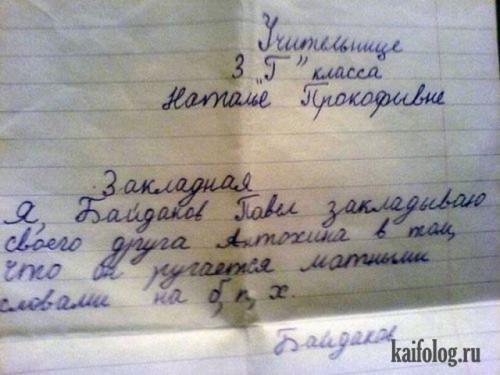 Учительнице
3 "Г" класса
Наталье Прокофивне
Закладная
Я, Байдаков Павел закладываю
своего друга Антохина в том,
что он ругается матными
словами на б, п, х.
Байдаков
kaifolog.ru